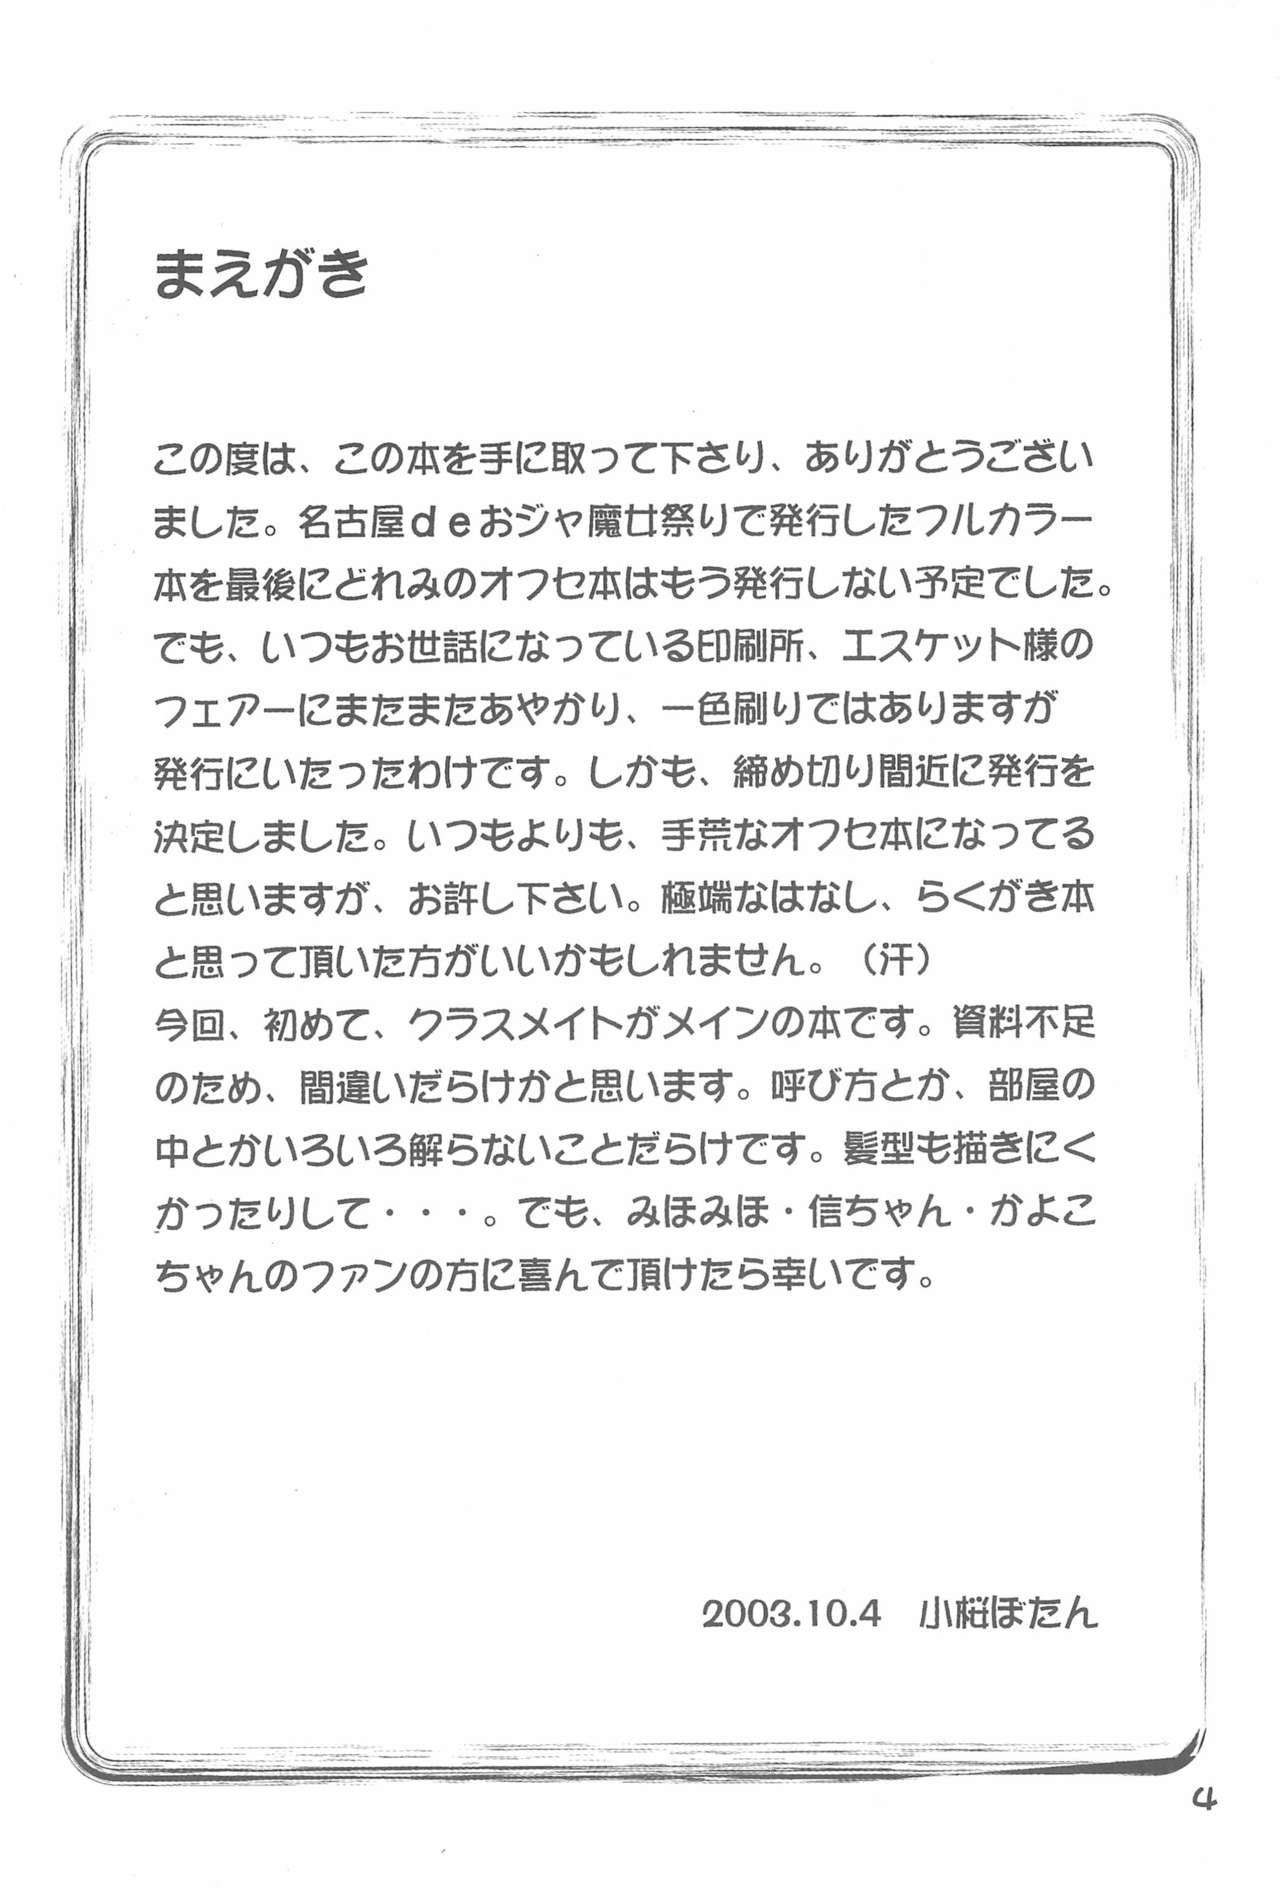 まえがき
この度は、この本を手に取って下さり、ありがとうござい
ました。名古屋ｄｅおジャ魔女祭りで発行したフルカラー
本を最後にどれみのオフセ本はもう発行しない予定でした。
でも、いつもお世話になっている印刷所、エスケット様の
フェアーにまたまたあやかり、一色刷りではありますが
発行にいたったわけです。しかも、締め切り間近に発行を
決定しました。いつもよりも、手荒なオフセ本になってる
と思いますが、お許し下さい。極端なはなし、らくがき本
と思って頂いた方がいいかもしれません。（汗）
今回、初めて、クラスメイトがメインの本です。資料不足
のため、間違いだらけかと思います。呼び方とか、部屋の
中とかいろいろ解らないことだらけです。髪型も描きにく
かったりして・・・。でも、みほみほ・信ちゃん・かよこ
ちゃんのファンの方に喜んで頂けたら幸いです。
2003.10.4　小桜ぼたん
4